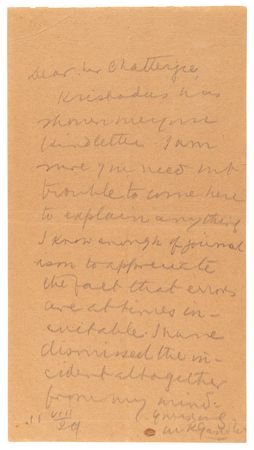 Dear Mr Chatterjee,
Krishnadas has
shown me your
kind letter. I am
sure you need not
trouble to come here
to explain anything
I know enough of journal
ism to appreciate
the fact that errors
are at times in-
evitable. I have
dismissed the in-
cident altogether
from my mind.
Yours sincerely
MKGandhi
11 VIII
24